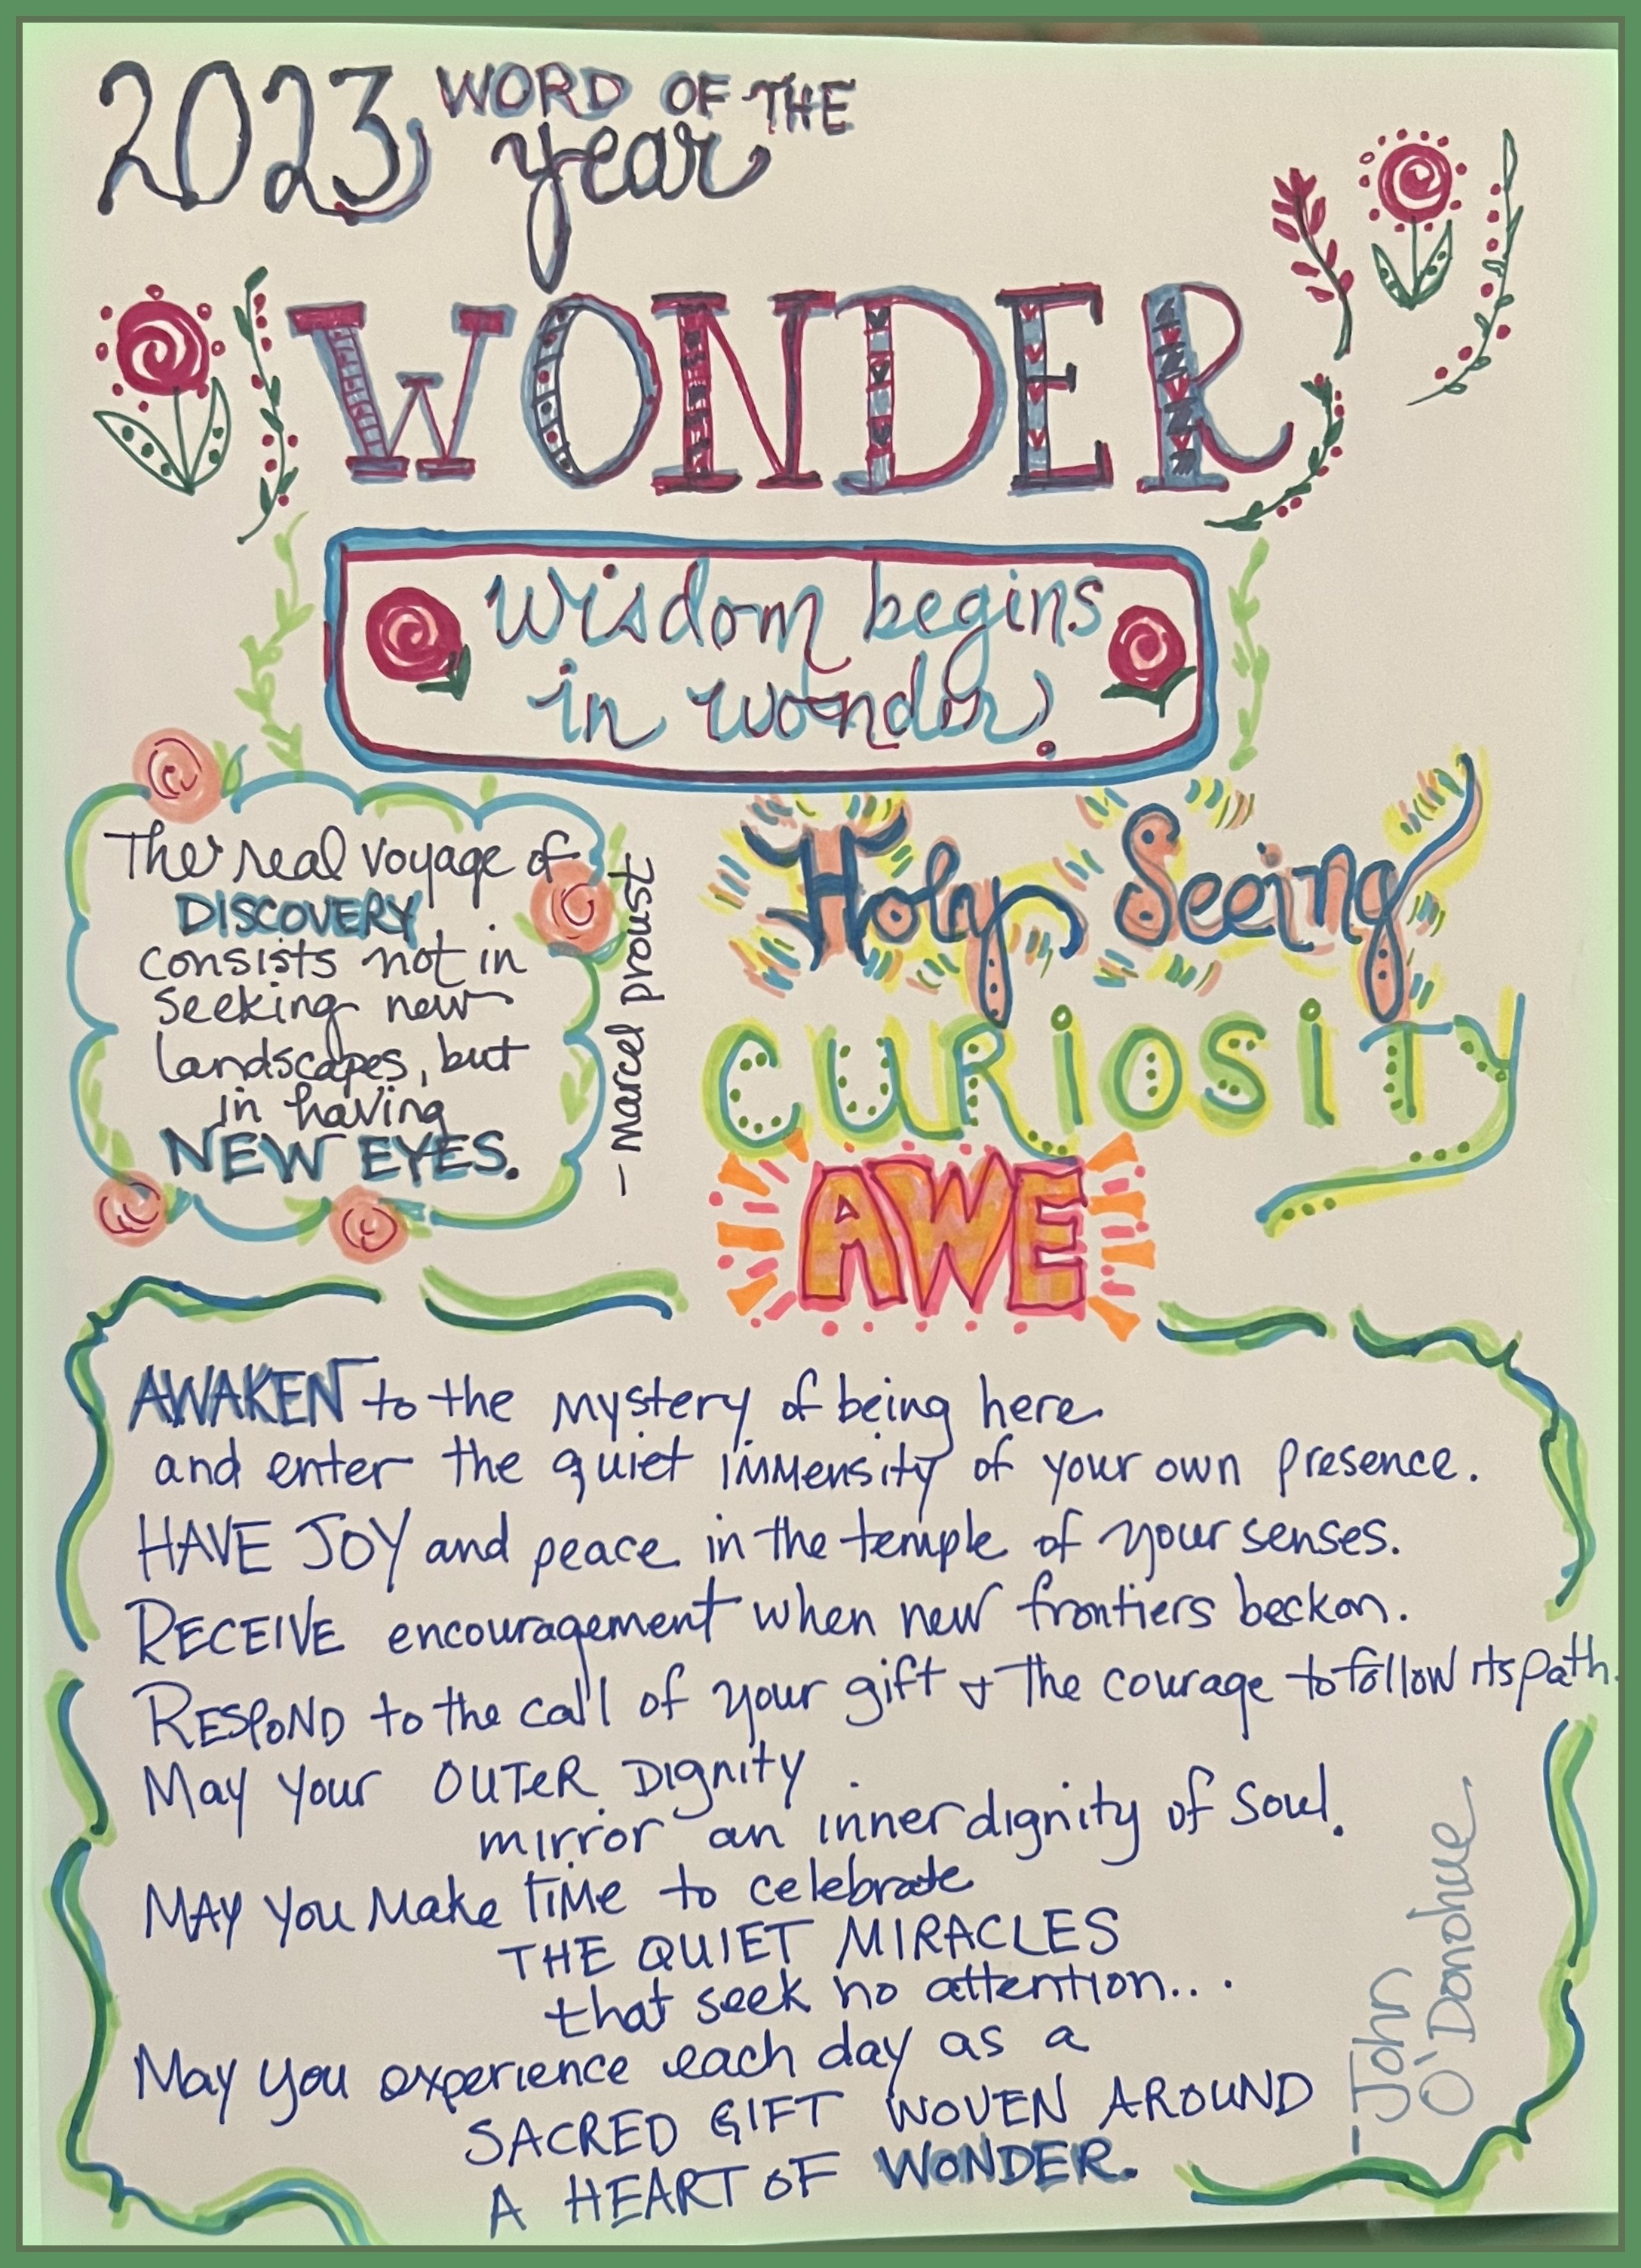 2023 WORD OF THE
year
WONDER
Wisdom begins
in wonder!
The real voyage of
DISCOVERY
consists not in
seeking new
landscapes, but
in having
NEW EYES.
-Marcel Proust
Holy Seeing
CURIOSITY
AWE
AWAKEN to the mystery of being here
and enter the quiet immensity of your own presence.
HAVE JOY and peace in the temple of your senses.
RECEIVE encouragement when new frontiers beckon.
RESPOND to the call of your gift & the courage to follow its path.
May your OUTER Dignity
mirror an inner dignity of Soul.
MAY you Make TIME to celebrate
THE QUIET MIRACLES
that seek no attention...
May you experience each day as a
SACRED GIFT WOVEN AROUND
A HEART OF WONDER.
-John
O'Donohue